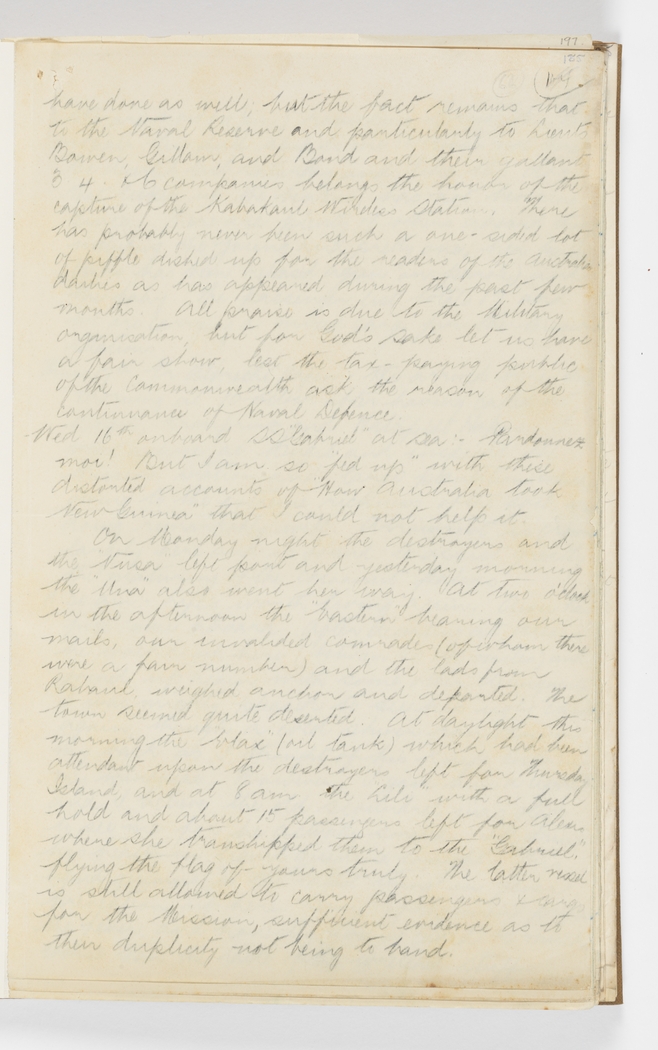 197
125
have done as well, but the fact remains that
to the Naval Reserve and particularly to Lieuts
Bowen, Gillam, and Bond and their gallant
3 4 & 6 companies belongs the honor of the
capture of the Kabakaul Wireless Station. There
has probably never been such a one-sided lot
of piffle dished up for the readers of the Australian
dailies as has appeared during the past few
months. All praise is due to the Military
organisation, but for God's sake let us have
a fair show, lest the tax-paying public
of the Commonwealth ask the reason of the
continuance of Naval Defence.
Wed 16th onboard SS "Gabriel" at sea :- Pardonnez
moi! But I am so "fed up" with these
distorted accounts of "How Australia took
New Guinea" that I could not help it.
On Monday night the destroyers and
the Nusa left port and yesterday morning
the "Una" also went her way. At two o'clock
in the afternoon the "Eastern" bearing our
mails, our invalided comrades (of whom there
were a fair number) and the lads from
Rabaul, weighed anchor and departed. The
town seemed quite deserted. At daylight this
morning the (oil tank) which had been
attendant upon the destroyers left for Thursday
Island, and at 8 am the "Lili" with a full
hold and about 15 passengers left for Alexis
where she transhipped them to the "Gabriel",
flying the flag of yours truly. The latter vessel
is still allowed to carry passengers & cargo
for the Mission, sufficient evidence as to
their duplicity not being to hand.